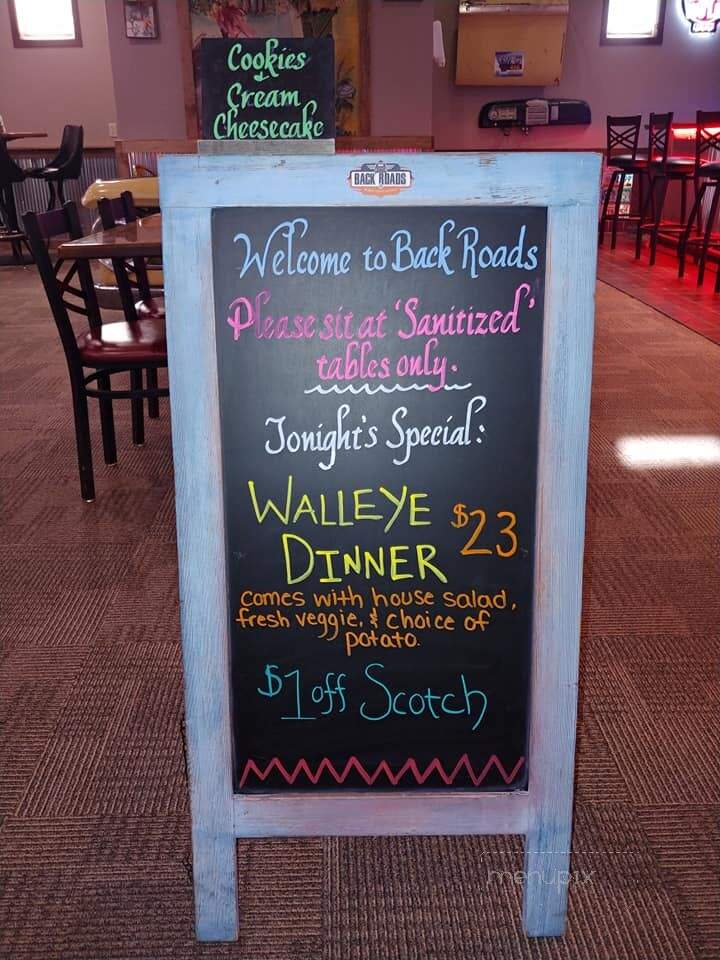 Cookies
&
Cream
Cheesecake
BACK ROADS
Welcome to Back Roads
Please sit at 'Sanitized'
tables only.
Tonight's Special:
WALLEYE $23
DINNER
comes with house salad,
fresh veggie, & choice of
potato.
$1 off Scotch
menupix